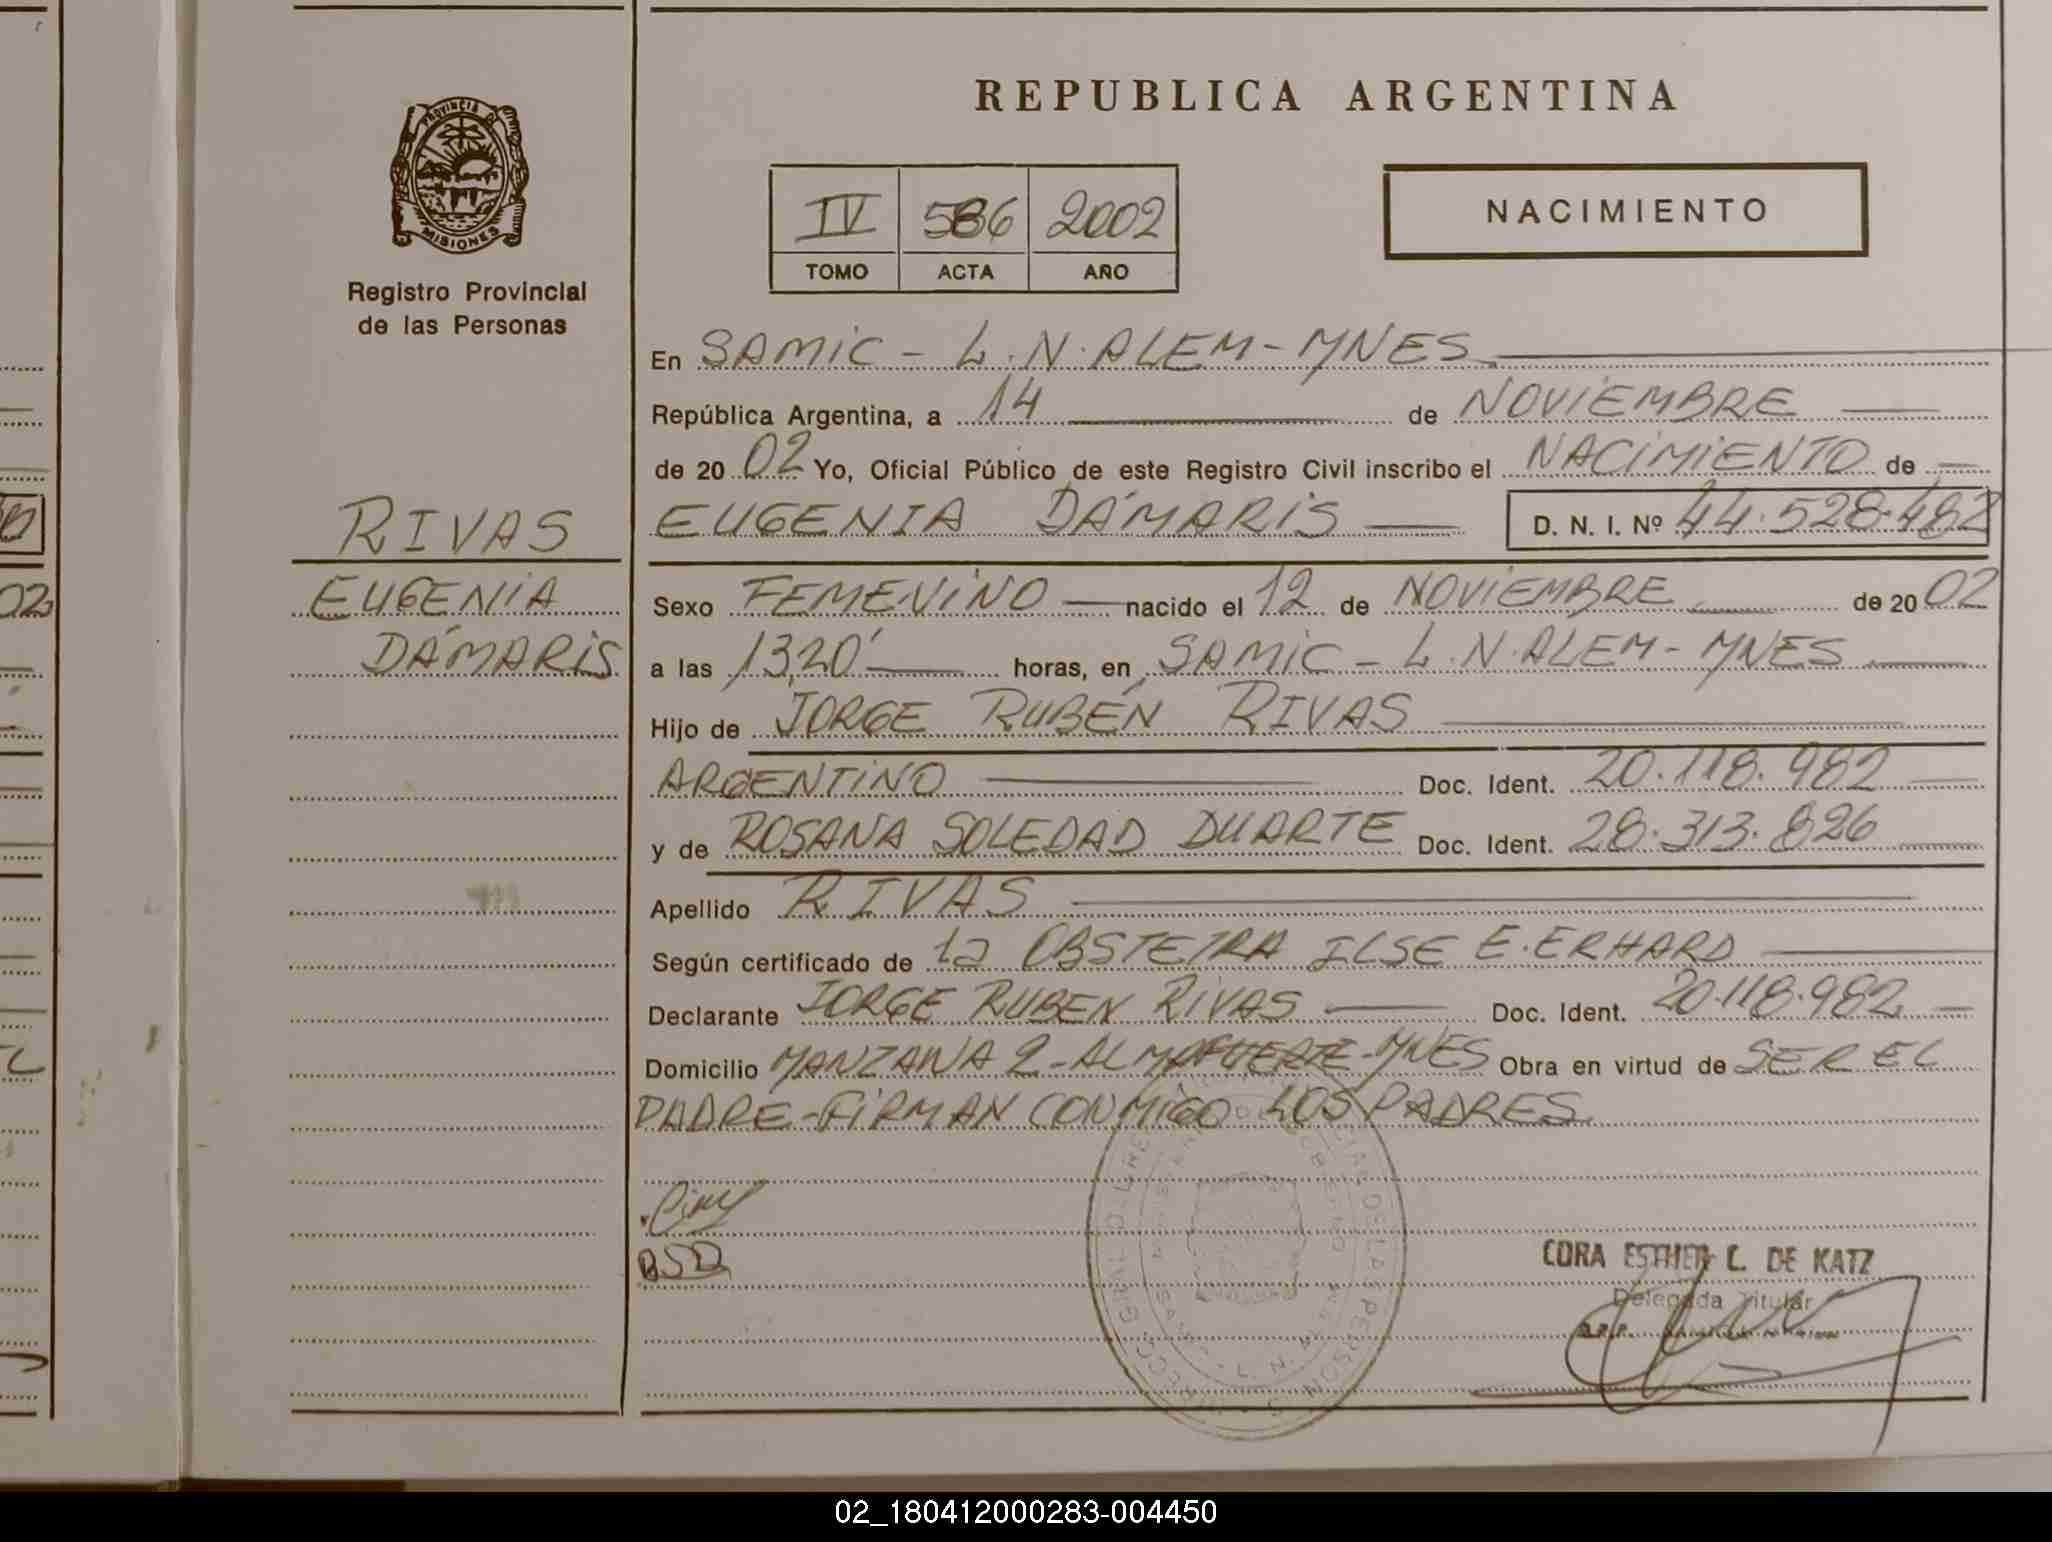 REPUBLICA ARGENTINA
PROVINCIA DE
MISIONES
Registro Provincial
de las Personas
IV 586 2002
TOMO ACTA AÑO
NACIMIENTO
En SAMIC - L.N. ALEM - MNES
República Argentina, a 14 de NOVIEMBRE
de 20 02 Yo, Oficial Público de este Registro Civil inscribo el NACIMIENTO de
EUGENIA DÁMARIS D. N. I. Nº 44.528.482
RIVAS
EUGENIA
DÁMARIS
Sexo FEMENINO nacido el 12 de NOVIEMBRE de 20 02
a las 13,20' horas, en SAMIC - L.N. ALEM - MNES
Hijo de JORGE RUBÉN RIVAS
ARGENTINO Doc. Ident. 20.118.982
y de ROSANA SOLEDAD DUARTE Doc. Ident. 28.313.826
Apellido RIVAS
Según certificado de la OBSTETRA ILSE E. ERHARD
Declarante JORGE RUBEN RIVAS Doc. Ident. 20.118.982
Domicilio MANZANA 2 - ALMAFUERTE - MNES Obra en virtud de SER EL
PADRE - FIRMAN CONMIGO LOS PADRES
CORA ESTHER C. DE KATZ
Delegada Titular
02_180412000283-004450